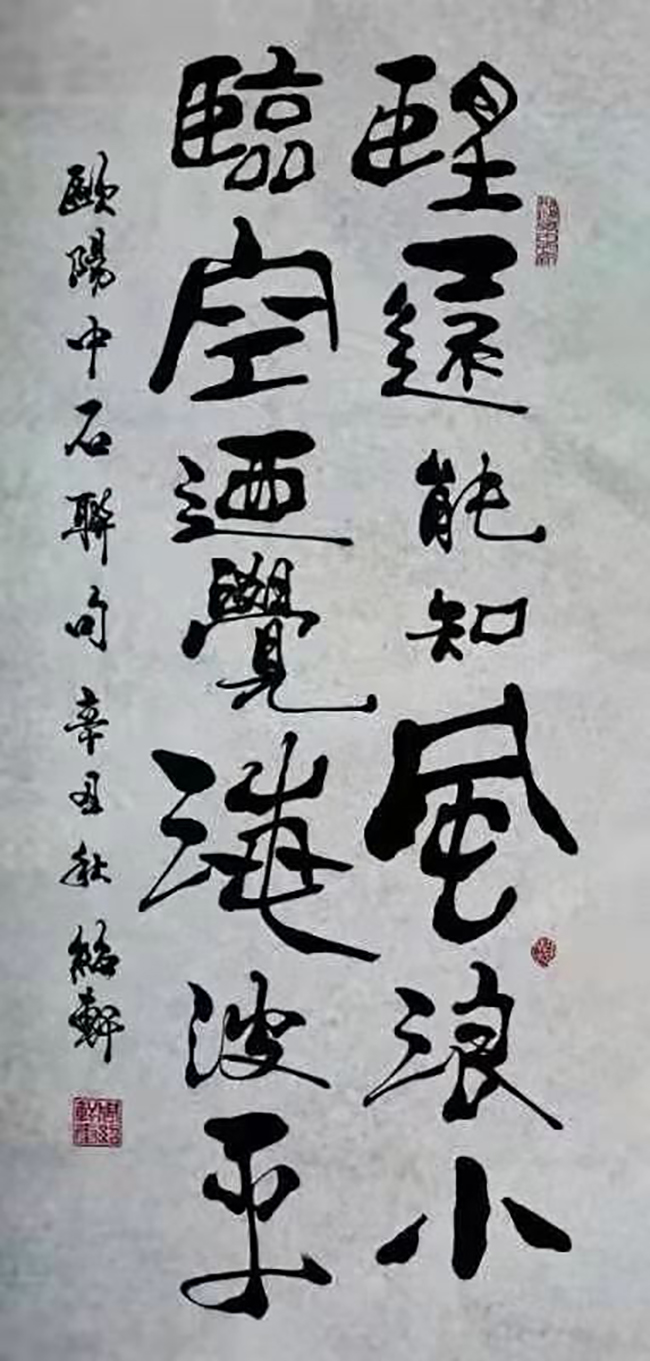 朢遠能知風浪小
臨空迺覺海波平
歐陽中石聯句辛丑秋紹軒